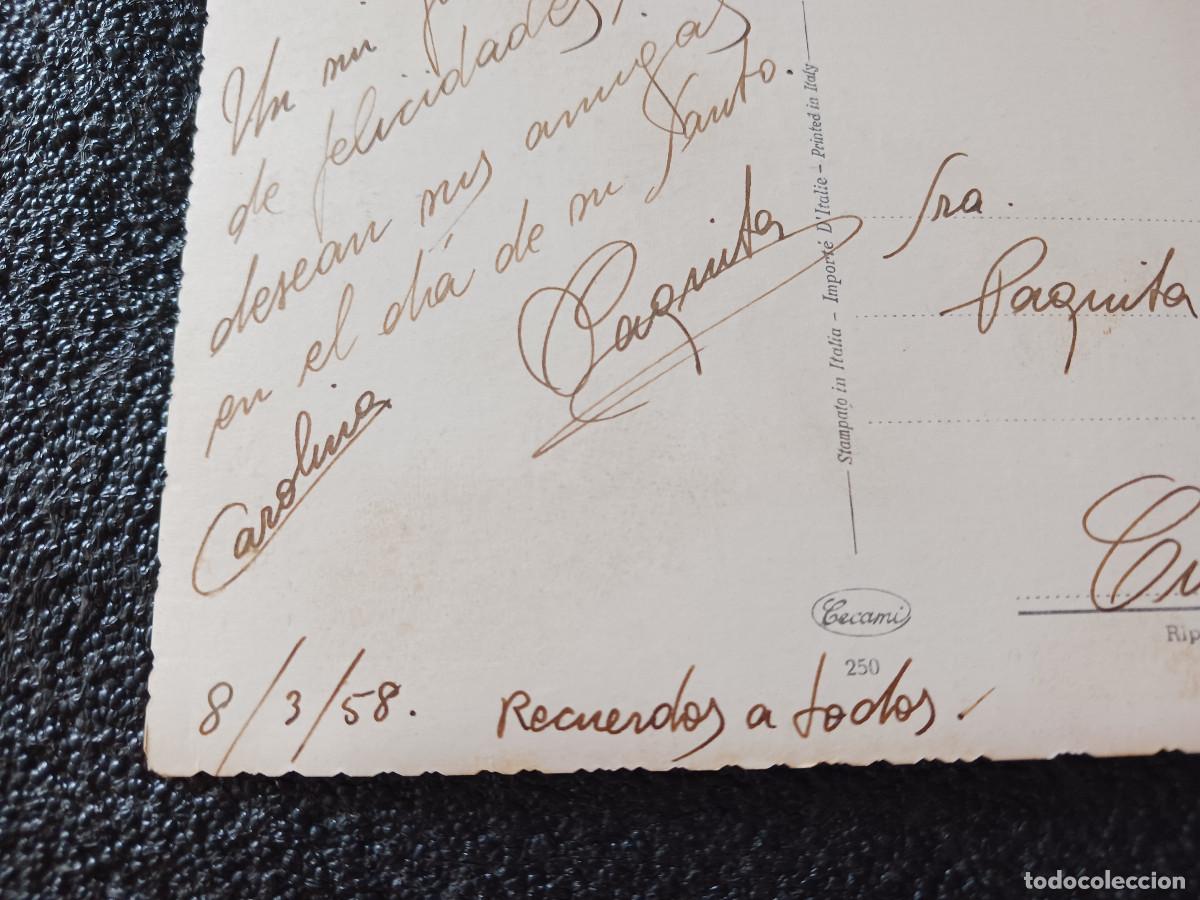 Un mi
de felicidades,
desean sus amigas
en el día de su Santo.
Carolina
Paquita
8/3/58. Recuerdos a todos.
Stampato in Italia - Importé D'Italie - Printed in Italy
Cecami
250
Sra.
Paquita
Rip
todocoleccion